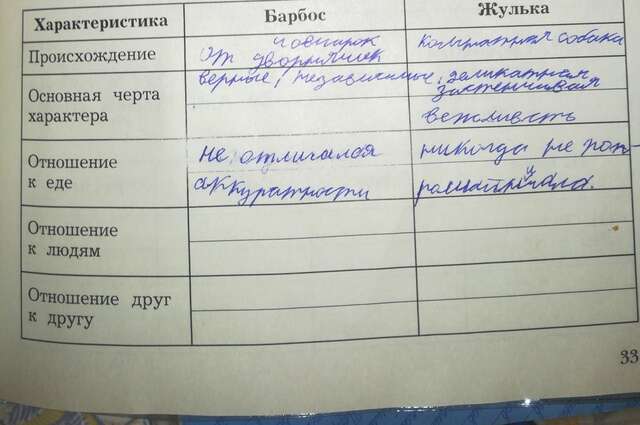 Характеристика Барбос Жулька
Происхождение От дворняшек и овчарок комнатная собака
Основная черта верные, независимые, деликатная
характера застенчивая
вежливость
Отношение не отличался никогда не поп-
к еде аккуратности
Отношение
к людям
Отношение друг
к другу
33